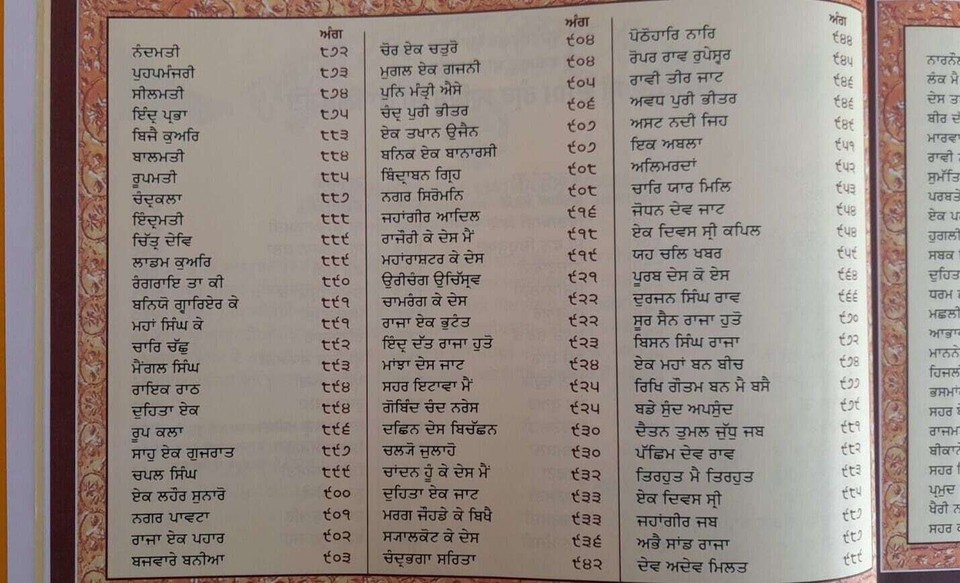 ਅੰਗ
ਨੰਦਮਤੀ ੮੭੨
ਪੁਹਪਮੰਜਰੀ ੮੭੩
ਸੀਲਮਤੀ ੮੭੪
ਇੰਦ੍ਰ ਪ੍ਰਭਾ ੮੭੫
ਬਿਜੈ ਕੁਅਰਿ ੮੮੩
ਬਾਲਮਤੀ ੮੮੪
ਰੂਪਮਤੀ ੮੮੫
ਚੰਦ੍ਰਕਲਾ ੮੮੭
ਇੰਦ੍ਰਮਤੀ ੮੮੮
ਚਿੱਤ੍ਰ ਦੇਵਿ ੮੮੯
ਲਾਡਮ ਕੁਅਰਿ ੮੮੯
ਰੰਗਰਾਇ ਤਾ ਕੀ ੮੯੦
ਬਨਿਯੋ ਗ੍ਵਾਰਿਏਰ ਕੇ ੮੯੧
ਮਹਾਂ ਸਿੰਘ ਕੇ ੮੯੧
ਚਾਰਿ ਚੱਛੁ ੮੯੨
ਮੈਂਗਲ ਸਿੰਘ ੮੯੩
ਰਾਇਕ ਰਾਠ ੮੯੪
ਦੁਹਿਤਾ ਏਕ ੮੯੪
ਰੂਪ ਕਲਾ ੮੯੬
ਸਾਹੁ ਏਕ ਗੁਜਰਾਤ ੮੯੭
ਚਪਲ ਸਿੰਘ ੮੯੯
ਏਕ ਲਹੌਰ ਸੁਨਾਰੋ ੯੦੦
ਨਗਰ ਪਾਵਟਾ ੯੦੧
ਰਾਜਾ ਏਕ ਪਹਾਰ ੯੦੨
ਬਜਵਾਰੇ ਬਨੀਆ ੯੦੩
ਅੰਗ
ਚੋਰ ਏਕ ਚਤੁਰੋ ੯੦੪
ਮੁਗਲ ਏਕ ਗਜਨੀ ੯੦੪
ਪੁਨਿ ਮੰਤ੍ਰੀ ਐਸੋ ੯੦੫
ਚੰਦ੍ਰ ਪੁਰੀ ਭੀਤਰ ੯੦੬
ਏਕ ਤਖਾਨ ਉਜੈਨ ੯੦੭
ਬਨਿਕ ਏਕ ਬਾਨਾਰਸੀ ੯੦੭
ਬਿੰਦ੍ਰਾਬਨ ਗ੍ਰਿਹ ੯੦੮
ਨਗਰ ਸਿਰੋਮਨਿ ੯੦੮
ਜਹਾਂਗੀਰ ਆਦਿਲ ੯੧੬
ਰਾਜੌਰੀ ਕੇ ਦੇਸ ਮੈਂ ੯੧੮
ਮਹਾਂਰਾਸ਼ਟਰ ਕੇ ਦੇਸ ੯੧੯
ਉਰੀਚੰਗ ਉਚਿੱਸ੍ਰਵ ੯੨੧
ਚਾਮਰੰਗ ਕੇ ਦੇਸ ੯੨੨
ਰਾਜਾ ਏਕ ਭੁਟੰਤ ੯੨੨
ਇੰਦ੍ਰ ਦੱਤ ਰਾਜਾ ਹੁਤੋ ੯੨੩
ਮਾਂਝਾ ਦੇਸ ਜਾਟ ੯੨੪
ਸਹਰ ਇਟਾਵਾ ਮੈਂ ੯੨੫
ਗੋਬਿੰਦ ਚੰਦ ਨਰੇਸ ੯੨੫
ਦਛਿਨ ਦੇਸ ਬਿਚੱਛਨ ੯੩੦
ਚਲ੍ਯੋ ਜੁਲਾਹੋ ੯੩੦
ਚਾਂਦਨ ਹੂੰ ਕੇ ਦੇਸ ਮੈਂ ੯੩੨
ਦੁਹਿਤਾ ਏਕ ਜਾਟ ੯੩੩
ਮਰਗ ਜੌਹਡੇ ਕੇ ਬਿਖੈ ੯੩੩
ਸ੍ਯਾਲਕੋਟ ਕੇ ਦੇਸ ੯੩੬
ਚੰਦ੍ਰਭਗਾ ਸਰਿਤਾ ੯੪੨
ਅੰਗ
ਪੋਠੋਹਾਰਿ ਨਾਰਿ ੯੪੪
ਰੋਪਰ ਰਾਵ ਰੁਪੇਸ੍ਵਰ ੯੪੫
ਰਾਵੀ ਤੀਰ ਜਾਟ ੯੪੬
ਅਵਧ ਪੁਰੀ ਭੀਤਰ ੯੪੬
ਅਸਟ ਨਦੀ ਜਿਹ ੯੪੯
ਇਕ ਅਬਲਾ ੯੫੧
ਅਲਿਮਰਦਾਂ ੯੫੨
ਚਾਰਿ ਯਾਰ ਮਿਲਿ ੯੫੩
ਜੋਧਨ ਦੇਵ ਜਾਟ ੯੫੪
ਏਕ ਦਿਵਸ ਸ੍ਰੀ ਕਪਿਲ ੯੫੪
ਯਹ ਚਲਿ ਖਬਰ ੯੫੯
ਪੂਰਬ ਦੇਸ ਕੋ ਏਸ ੯੬੪
ਦੁਰਜਨ ਸਿੰਘ ਰਾਵ ੯੬੬
ਸੂਰ ਸੈਨ ਰਾਜਾ ਹੁਤੋ ੯੭੦
ਬਿਸਨ ਸਿੰਘ ਰਾਜਾ ੯੭੨
ਏਕ ਮਹਾਂ ਬਨ ਬੀਚ ੯੭੪
ਰਿਖਿ ਗੌਤਮ ਬਨ ਮੈ ਬਸੈ ੯੭੭
ਬਡੇ ਸੁੰਦ ਅਪਸੁੰਦ ੯੭੯
ਦੈਤਨ ਤੁਮਲ ਜੁੱਧੁ ਜਬ ੯੮੧
ਪੱਛਿਮ ਦੇਵ ਰਾਵ ੯੮੨
ਤਿਰਹੁਤ ਮੈ ਤਿਰਹੁਤ ੯੮੩
ਏਕ ਦਿਵਸ ਸ੍ਰੀ ੯੮੫
ਜਹਾਂਗੀਰ ਜਬ ੯੮੭
ਅਭੈ ਸਾਂਡ ਰਾਜਾ ੯੮੭
ਦੇਵ ਅਦੇਵ ਮਿਲਤ ੯੮੯
ਲੰਕ ਮੈ
ਦੇਸ
ਬੀਰ
ਰਾਵੀ
ਏਕ
ਸਬਕ
ਦੁਹਿਤ
ਧਰਮ
ਮਛਲੀ
ਸਹਰ
ਸਹਰ
ਪ੍ਰਮੁਦ
ਖੈਰੀ
ਸਹਰ